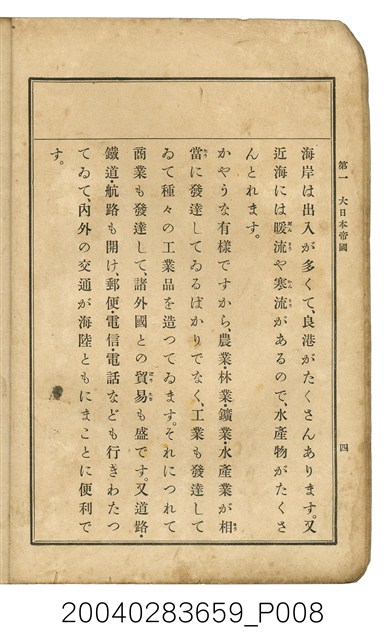 第一 大日本帝國
四
海岸は出入が多くて、良港がたくさんあります。又
近海には暖流や寒流があるので、水産物がたくさ
んとれます。
かやうな有様ですから、農業・林業・鑛業・水産業が相
當に發達してゐるばかりでなく、工業も發達して
ゐて種々の工業品を造つてゐます。それにつれて
商業も發達して、諸外國との貿易も盛です。又道路・
鐵道・航路も開け、郵便・電信・電話なども行きわたつ
てゐて、內外の交通が海陸ともにまことに便利で
す。
20040283659_P008